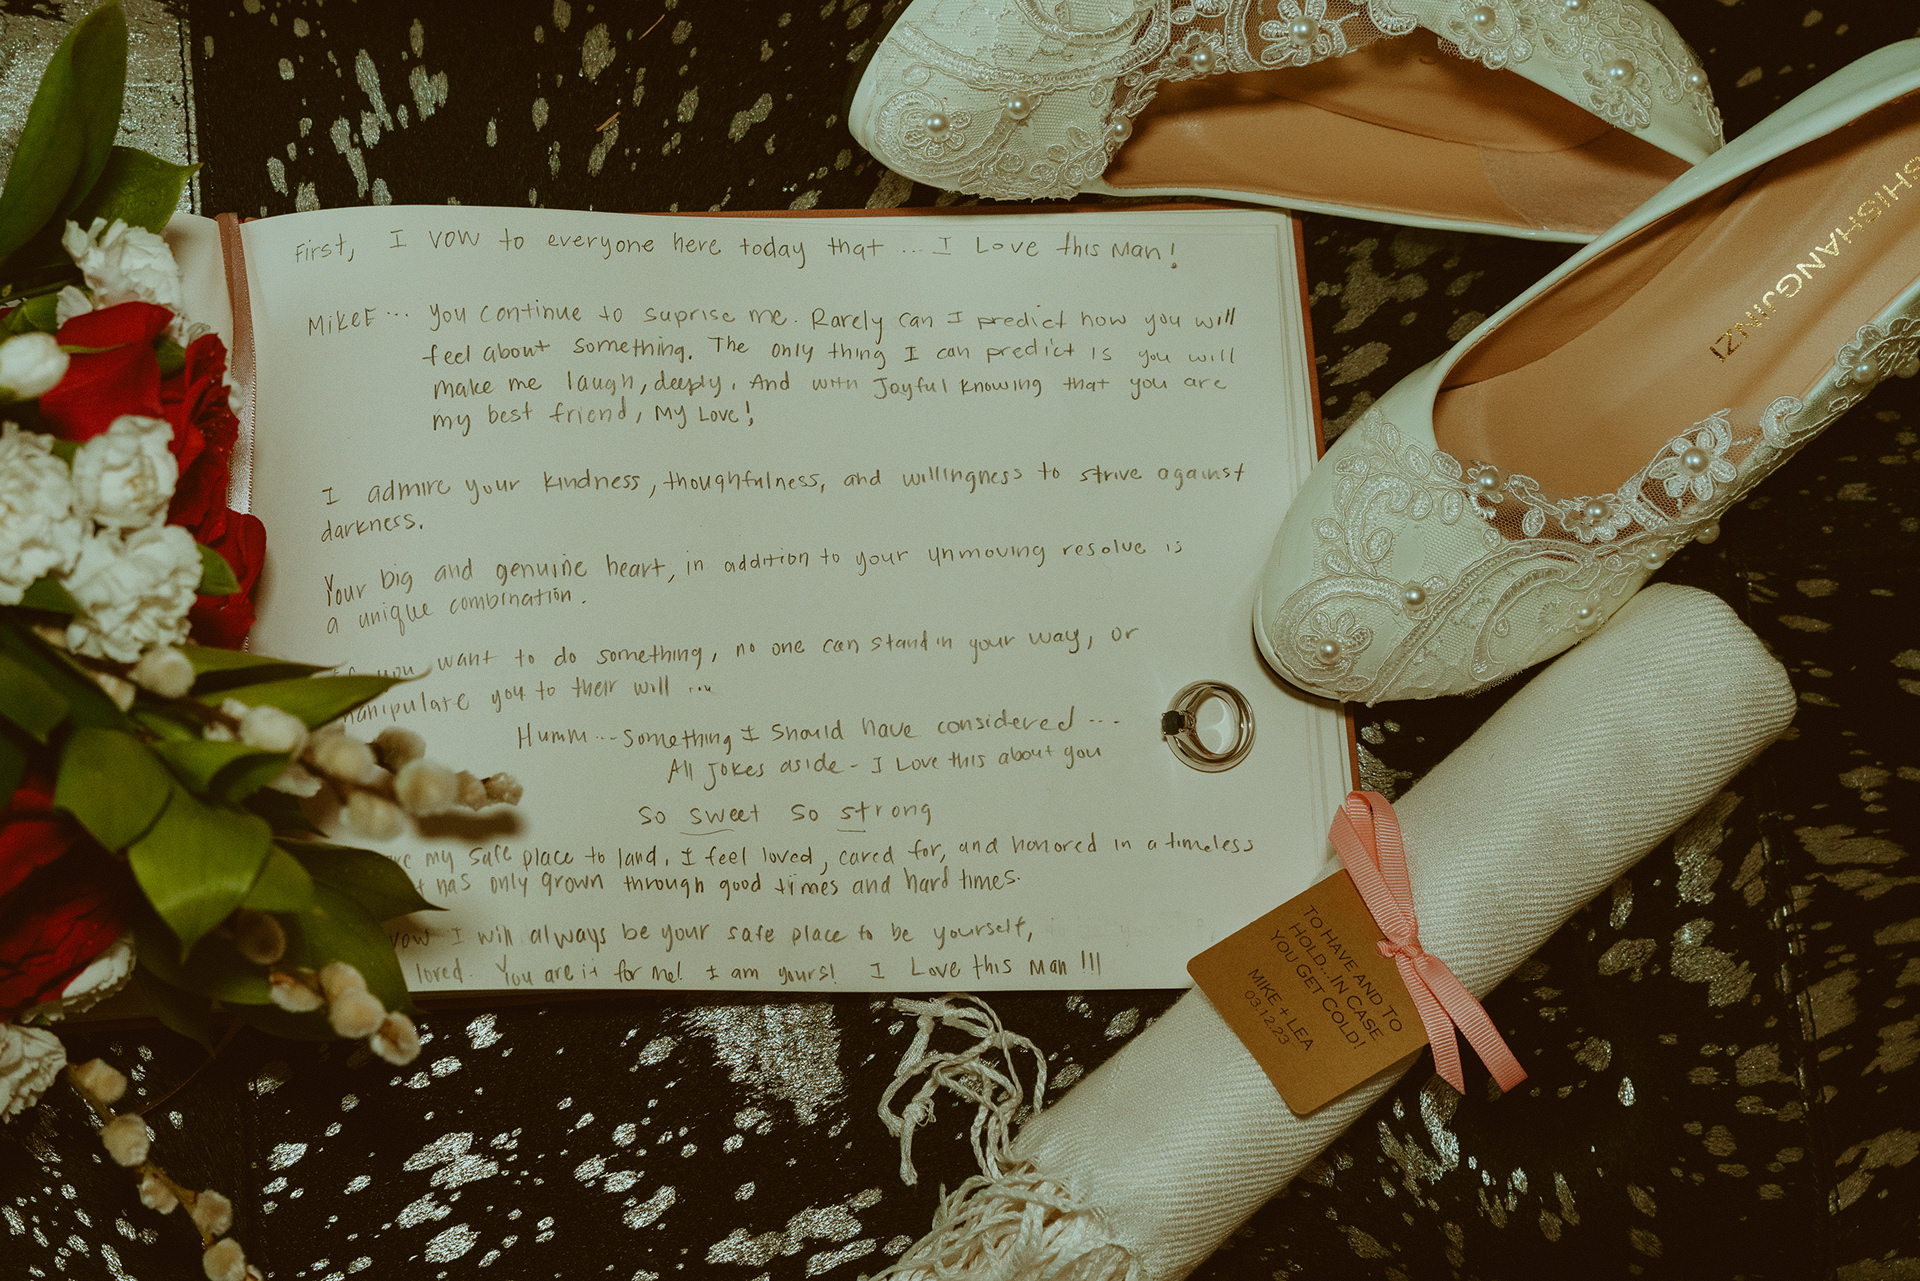 First, I vow to everyone here today that .... I Love this Man!
MikeE ... you continue to suprise me. Rarely can I predict how you will
feel about something. The only thing I can predict is you will
make me laugh, deeply. And with Joyful knowing that you are
my best friend, My Love!
I admire your kindness, thoughfulness, and willingness to strive against
darkness.
Your big and genuine heart, in addition to your unmoving resolve is
a unique combination.
you want to do something, no one can stand in your way, or
manipulate you to their will ...
Humm...Something I Should have considered ...
All Jokes aside - I Love this about you
So sweet So strong
my safe place to land. I feel loved, cared for, and honored in a timeless
has only grown through good times and hard times.
vow I will always be your safe place to be yourself,
loved. You are it for me! I am yours! I Love this Man!!!
SHISHANGJINZI
TO HAVE AND TO
HOLD...IN CASE
YOU GET COLD!
MIKE + LEA
03.12.23